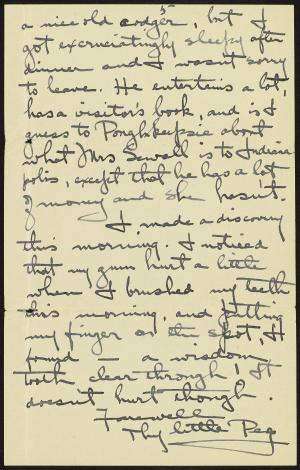 5
a nice old codger, but I
got excruciatingly sleepy after
dinner and I wasn't sorry
to leave. He entertains a lot,
has a visitor's book, and is I
guess to Poughkeepsie about
what Mrs Sewall is to Indiana
polis, except that he has a lot
of money and she hasn't.
I made a discovery
this morning. I noticed
that my gum hurt a little
when I brushed my teeth
this morning, and putting
my finger on the spot, I
found — a wisdom
tooth clear through! It
doesn't hurt though.
Farewell
Thy little Peg